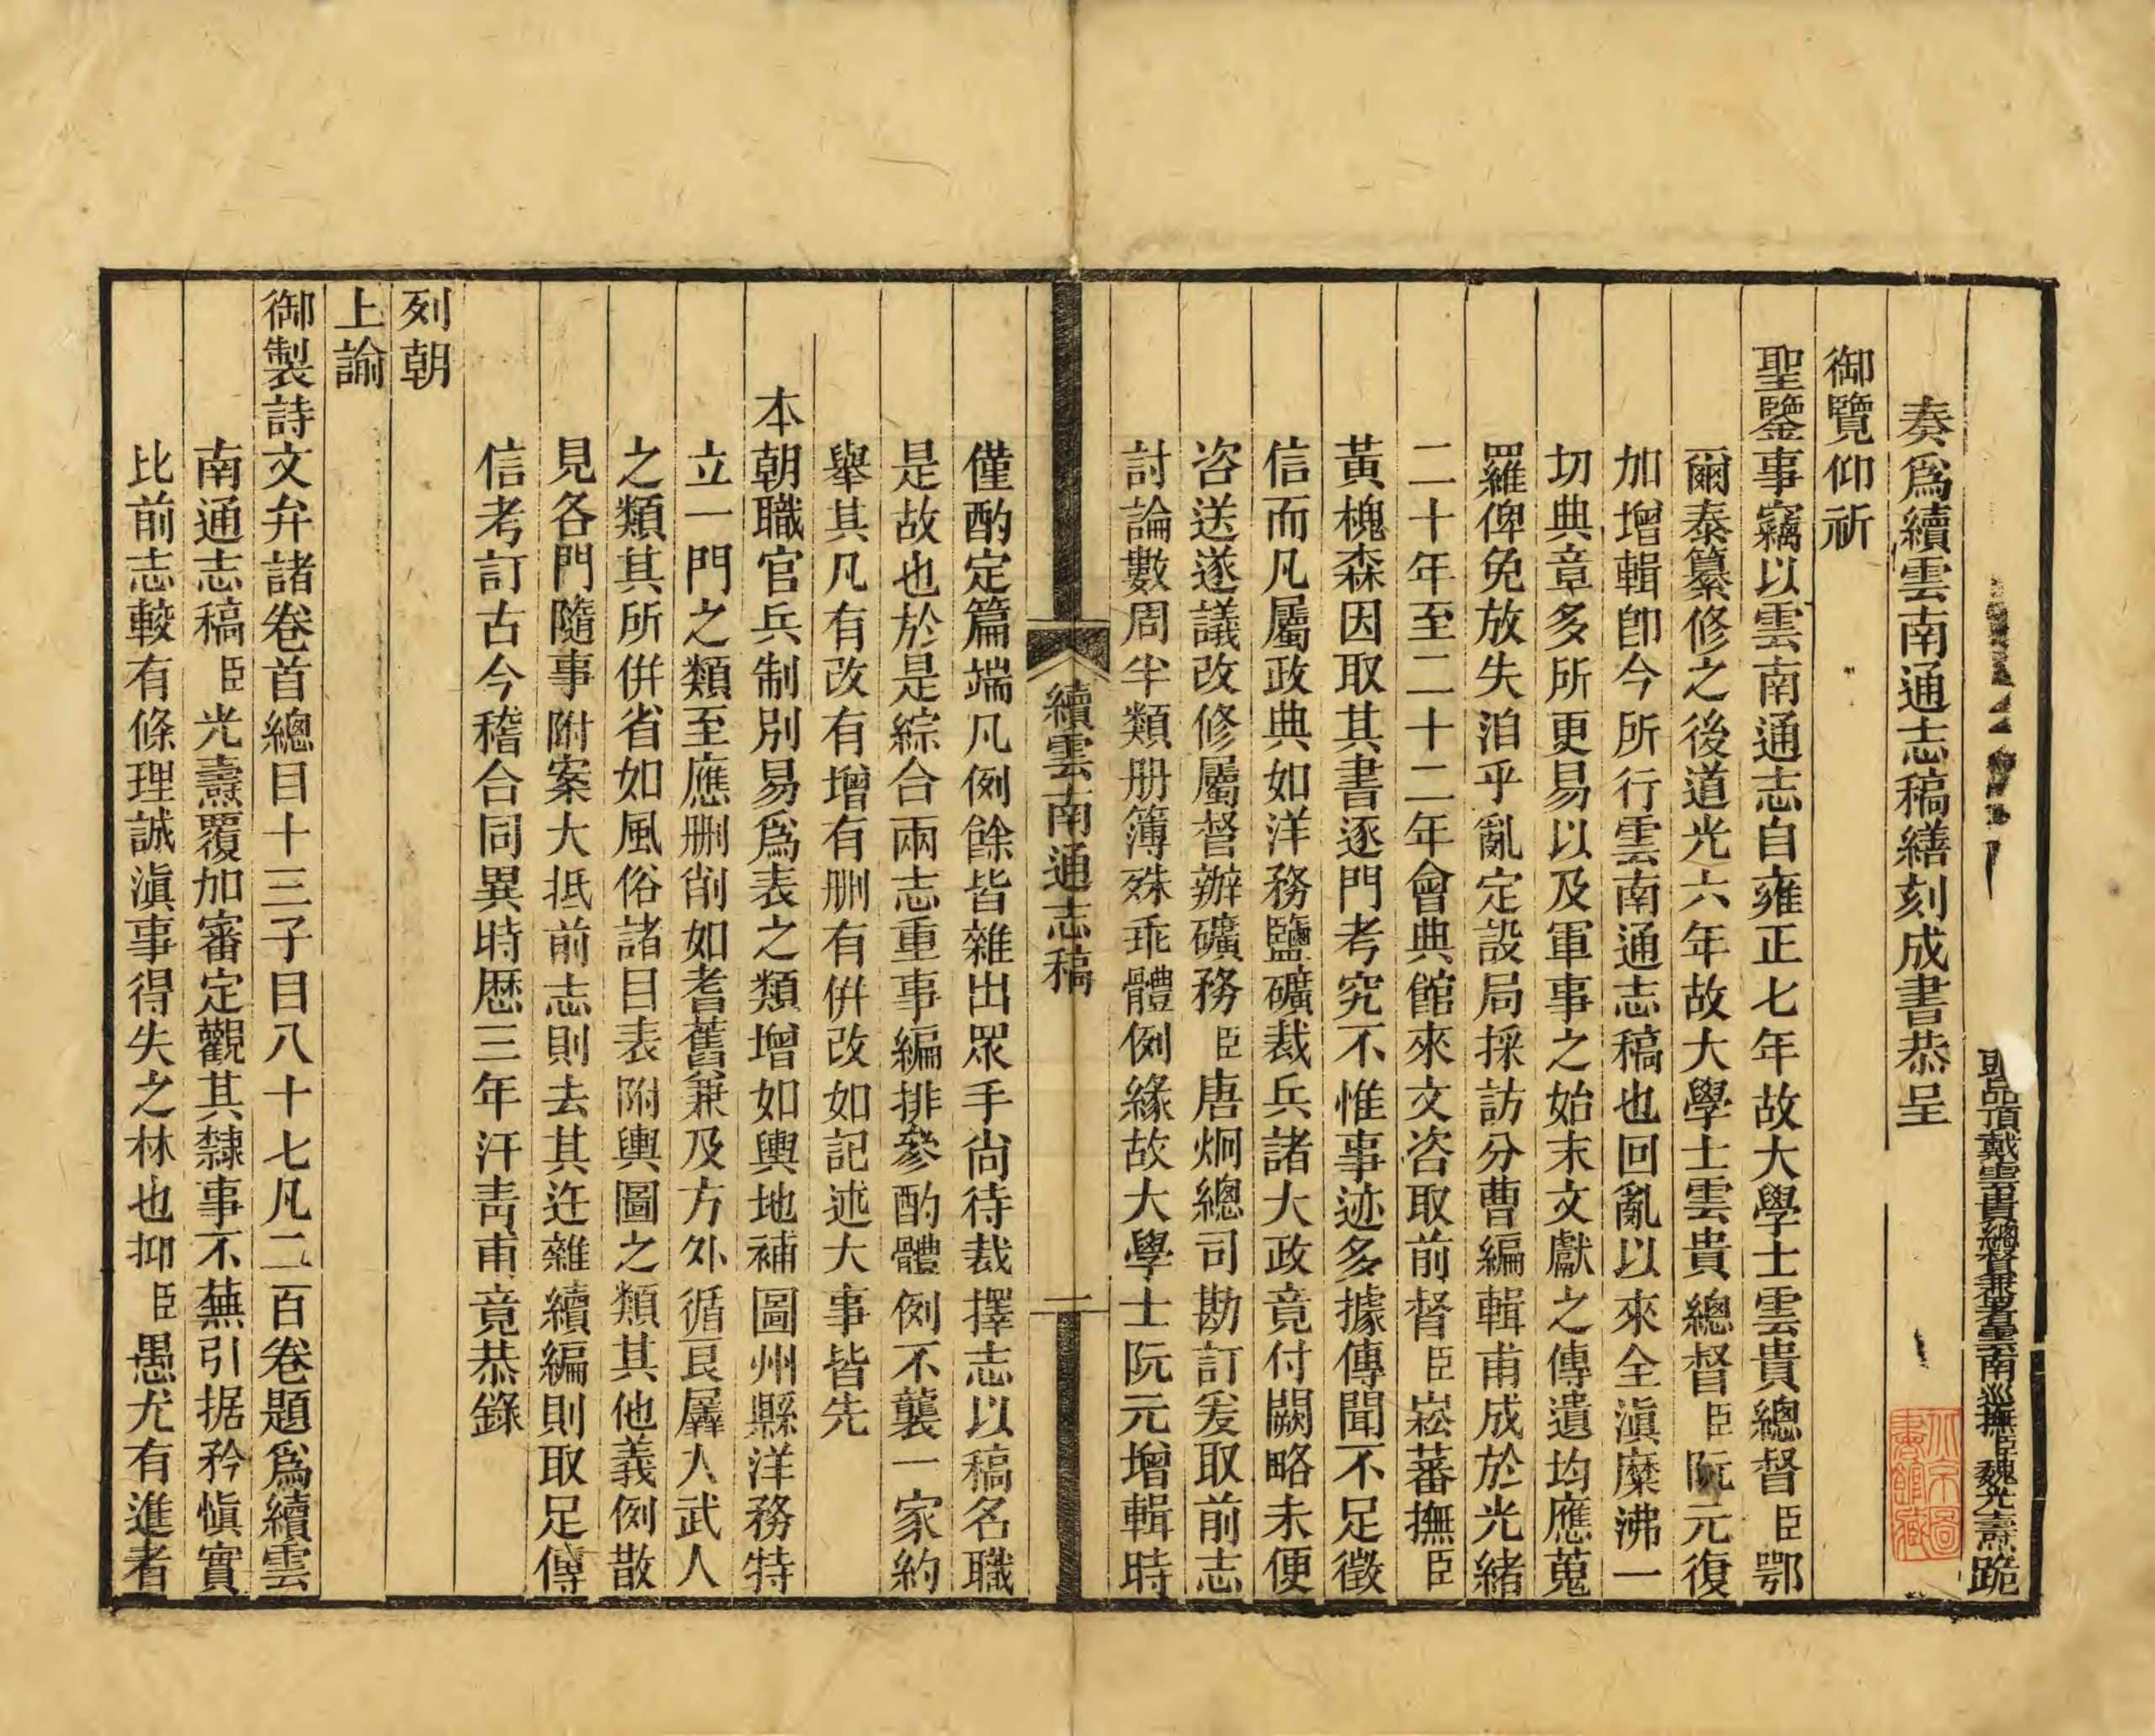 頭品頂戴雲貴總督兼署雲南巡撫臣魏光燾跪
奏爲續雲南通志稿繕刻成書恭呈
御覽仰祈
聖鑒事竊以雲南通志自雍正七年故大學士雲貴總督臣鄂
爾泰纂修之後道光六年故大學士雲貴總督臣阮元復
加增輯卽今所行雲南通志稿也回亂以來全滇糜沸一
切典章多所更易以及軍事之始末文獻之傳遺均應蒐
羅俾免放失洎乎亂定設局採訪分曹編輯甫成於光緒
二十年至二十二年會典館來文咨取前督臣崧蕃撫臣
黃槐森因取其書逐門考究不惟事迹多據傳聞不足徵
信而凡屬政典如洋務鹽礦裁兵諸大政竟付闕略未便
咨送遂議改修屬督辦礦務臣唐炯總司勘訂爰取前志
討論數周半類册簿殊乖體例緣故大學士阮元增輯時
續雲南通志稿
一
僅酌定篇端凡例餘皆雜出眾手尚待裁擇志以稿名職
是故也於是綜合兩志重事編排參酌體例不襲一家約
舉其凡有改有增有删有併改如記述大事皆先
本朝職官兵制別易爲表之類增如輿地補圖州縣洋務特
立一門之類至應删削如耆舊兼及方外循良羼入武人
之類其所併省如風俗諸目表附輿圖之類其他義例散
見各門隨事附案大抵前志則去其迕雜續編則取足傳
信考訂古今稽合同異時歷三年汗青甫竟恭錄
列朝
上諭
御製詩文弁諸卷首總目十三子目八十七凡二百卷題爲續雲
南通志稿臣光燾覆加審定觀其隸事不蕪引据矜愼實
比前志較有條理誠滇事得失之林也抑臣愚尤有進者
北京圖
書館藏